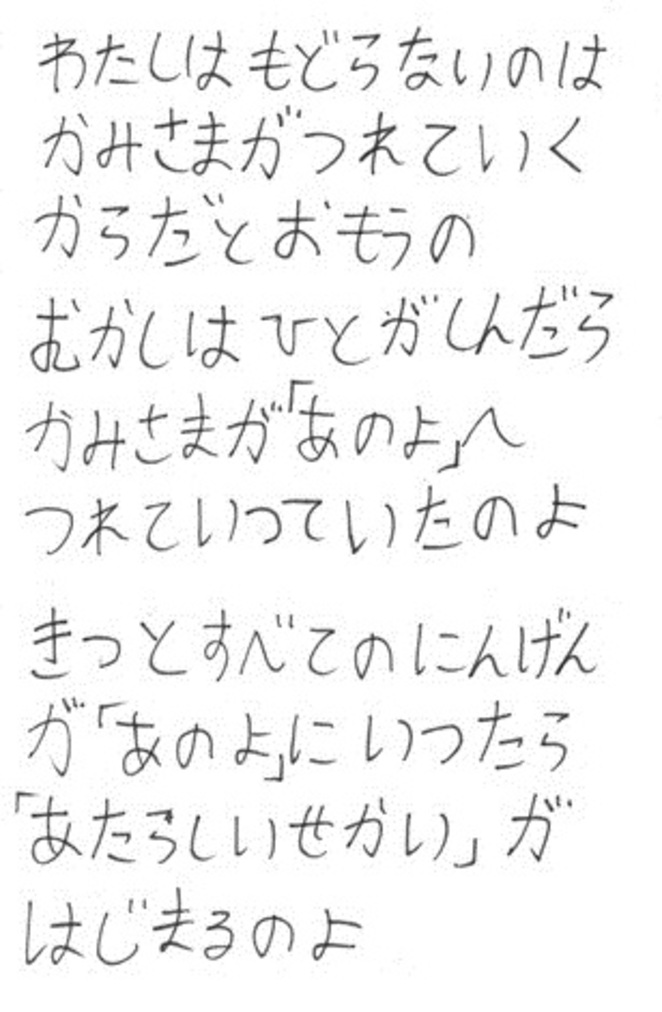 わたしはもどらないのは
かみさまがつれていく
からだとおもうの
むかしはひとがしんだら
かみさまが「あのよ」へ
つれていっていたのよ
きっとすべてのにんげん
が「あのよ」にいつたら
「あたらしいせかい」が
はじまるのよ